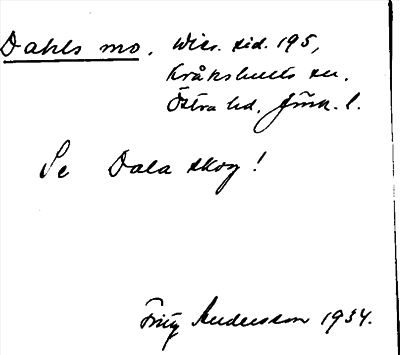 Dahls mo. Wies. sid. 195,
Kråkshults sn.
Östra hd. Jönk. l.
Se Dala skog!
Fritz Andersson 1934.